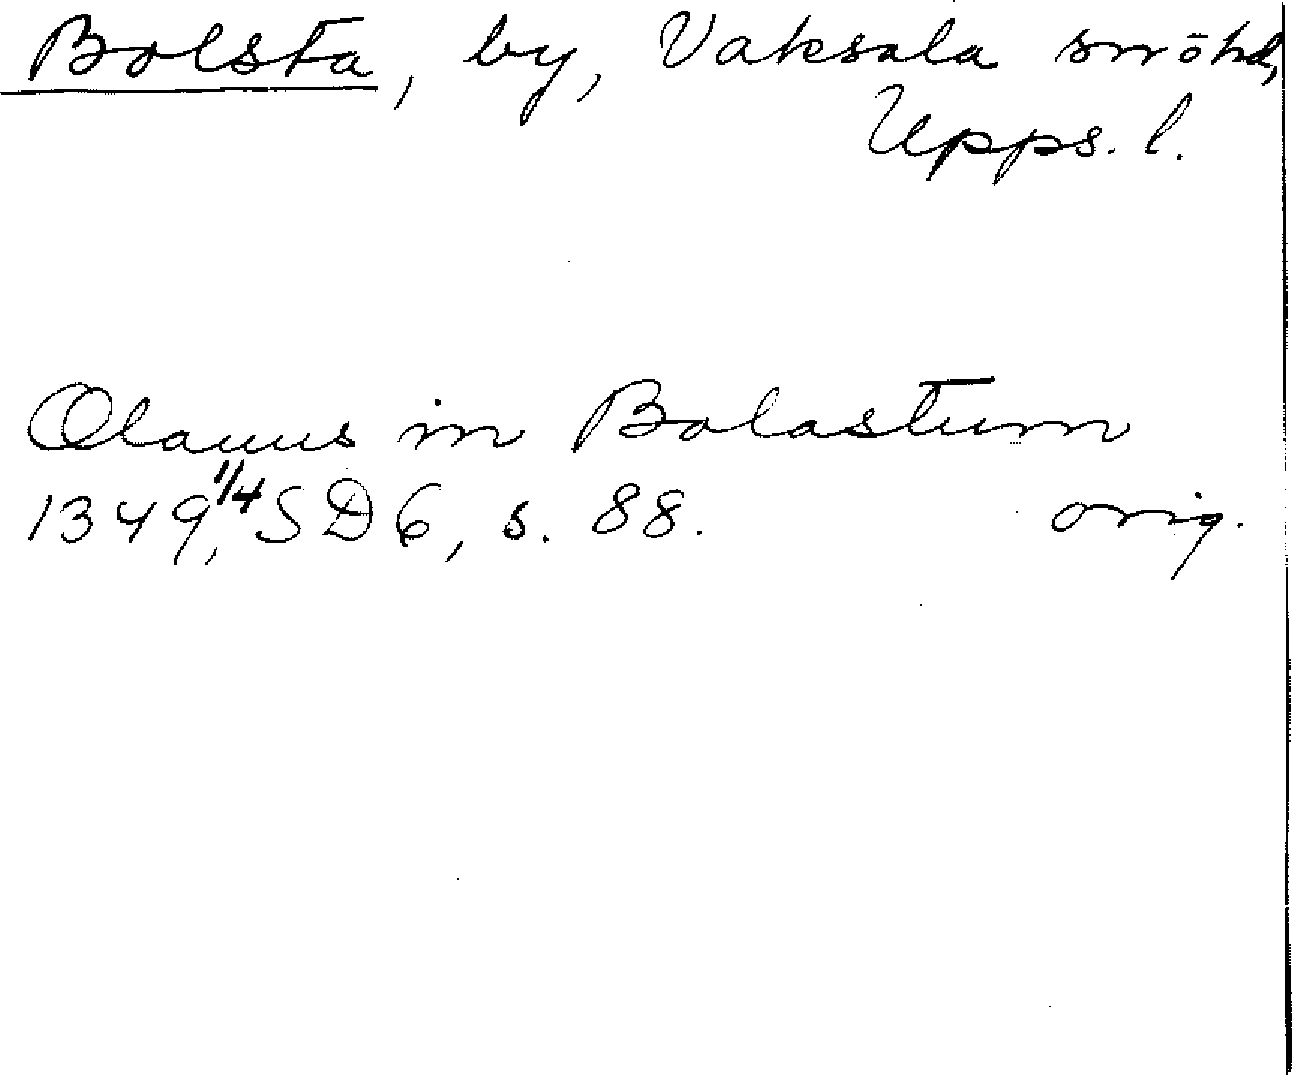 Bolsta, by, Vaksala sn o hd,
Upps. l.
Olauus in Bolastum
1349 1/4, SD 6, s. 88. orig.